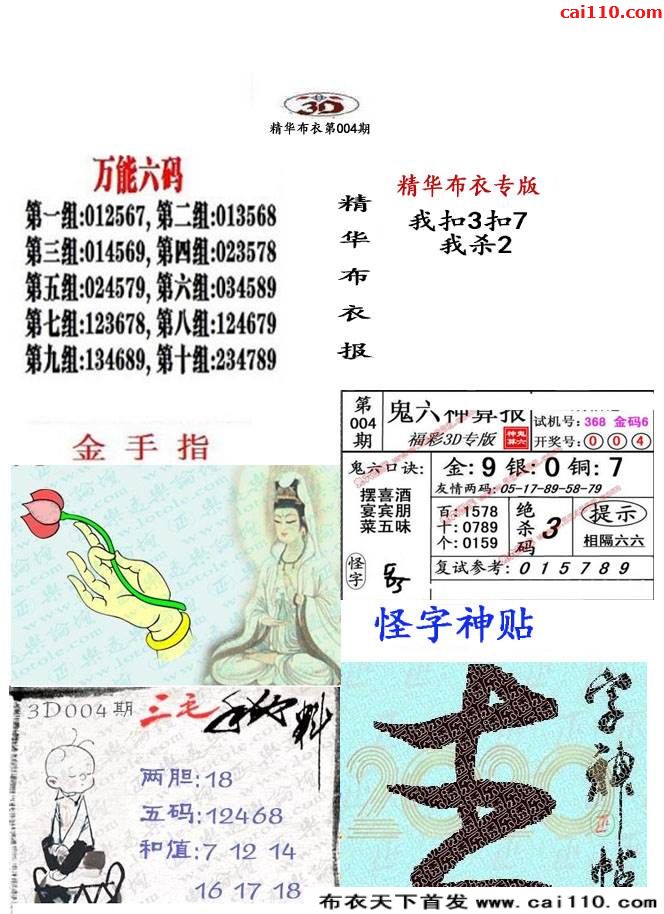 cai110.com
3D
精华布衣第004期
万能六码
第一组:012567, 第二组:013568
第三组:014569, 第四组:023578
第五组:024579, 第六组:034589
第七组:123678, 第八组:124679
第九组:134689, 第十组:234789
精华布衣报
精华布衣专版
我扣3扣7
我杀2
金手指
第004期
鬼六神算报
福彩3D专版
试机号: 368 金码6
开奖号: 0 0 4
鬼六口诀:
摆喜酒
宴宾朋
菜五味
金: 9 银: 0 铜: 7
友情两码: 05-17-89-58-79
百: 1578
十: 0789
个: 0159
绝杀码 3
提示
相隔六六
怪字
复试参考: 0 1 5 7 8 9
怪字神贴
3D004期 三毛
两胆:18
五码:12468
和值: 7 12 14
16 17 18
2020
字神帖
布衣天下首发 www.cai110.com